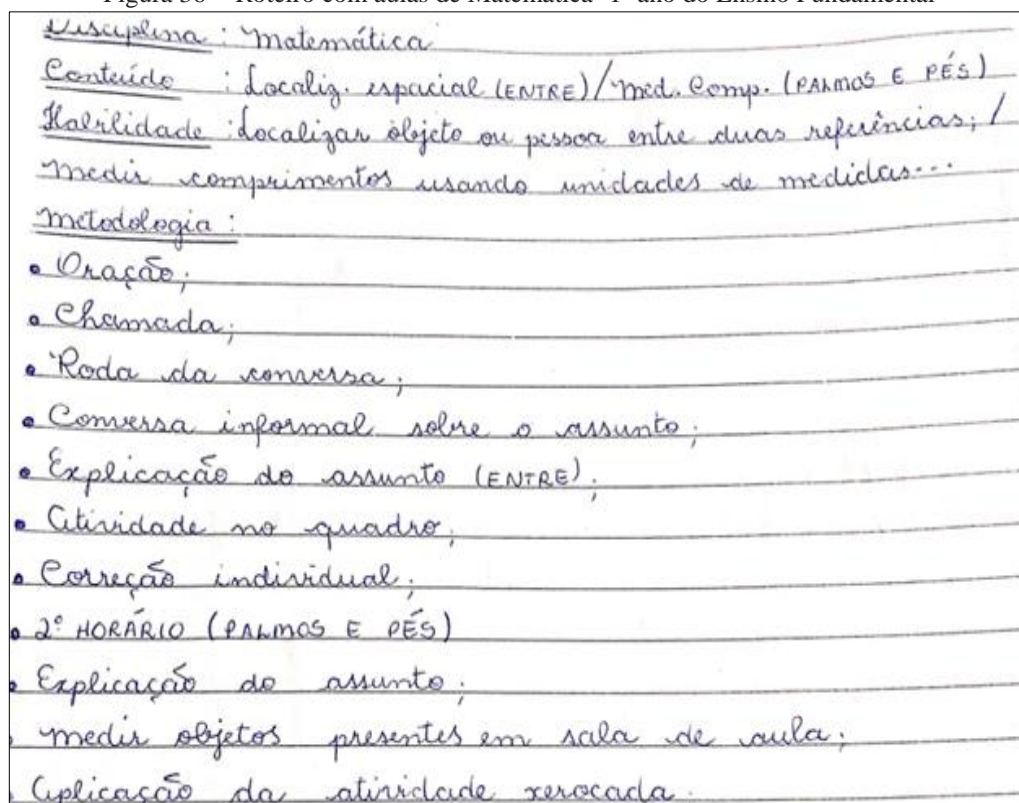 Disciplina : Matemática
Conteúdo : Localiz. espacial (ENTRE) / Med. Comp. (PALMOS E PÉS)
Habilidade : Localizar objeto ou pessoa entre duas referências; /
Medir comprimentos usando unidades de medidas...
Metodologia :
• Oração;
• Chamada;
• Roda da conversa;
• Conversa informal sobre o assunto;
• Explicação do assunto (ENTRE);
• Atividade no quadro;
• Correção individual;
• 2º HORÁRIO (PALMOS E PÉS)
• Explicação do assunto;
• Medir objetos presentes em sala de aula;
• Aplicação da atividade xerocada.